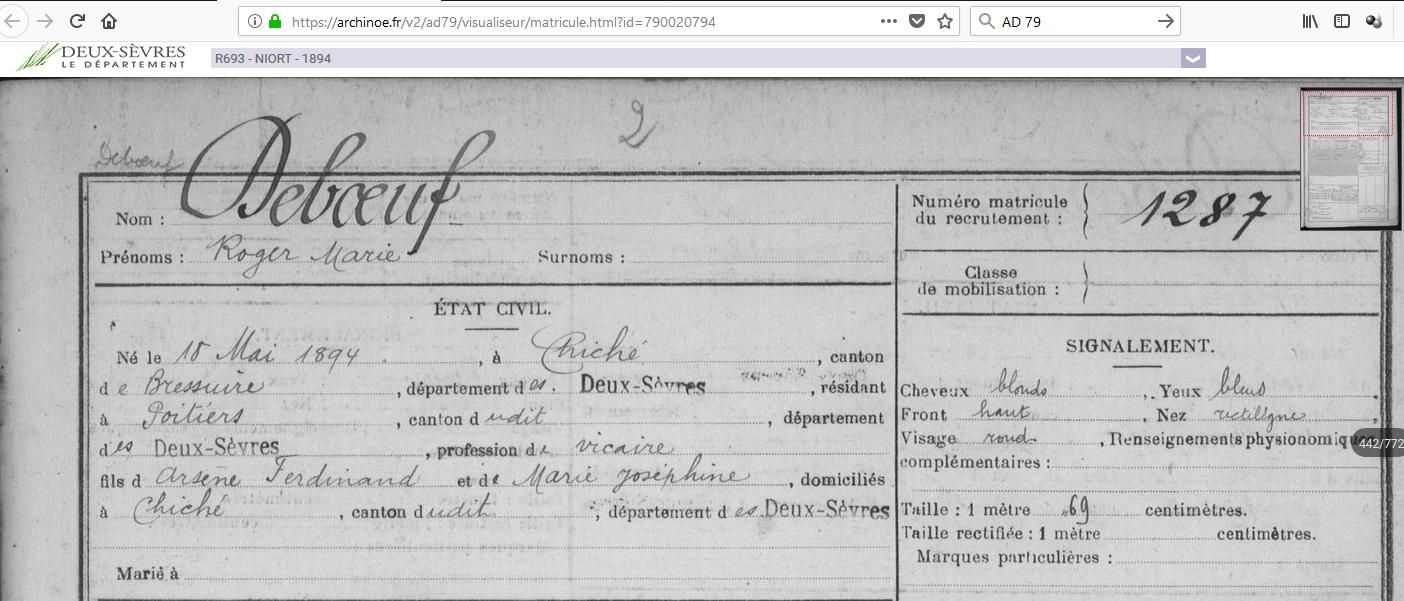 https://archinoe.fr/v2/ad79/visualiseur/matricule.html?id=790020794
AD 79
DEUX-SÈVRES
LE DÉPARTEMENT
R693 - NIORT - 1894
2
Debœuf
Nom : Debœuf
Prénoms : Roger Marie Surnoms :
Numéro matricule
du recrutement : 1287
Classe
de mobilisation :
ÉTAT CIVIL.
Né le 18 Mai 1894, à Chiché, canton
de Bressuire, département des Deux-Sèvres, résidant
à Poitiers, canton dudit, département
des Deux-Sèvres, profession de vicaire
fils d Arsène Ferdinand et de Marie Joséphine, domiciliés
à Chiché, canton dudit, département des Deux-Sèvres
Marié à
SIGNALEMENT.
Cheveux blonds, Yeux bleus,
Front haut, Nez rectiligne,
Visage rond, Renseignements physionomiqu
442/772
complémentaires :
Taille : 1 mètre 69 centimètres.
Taille rectifiée : 1 mètre centimètres.
Marques particulières :